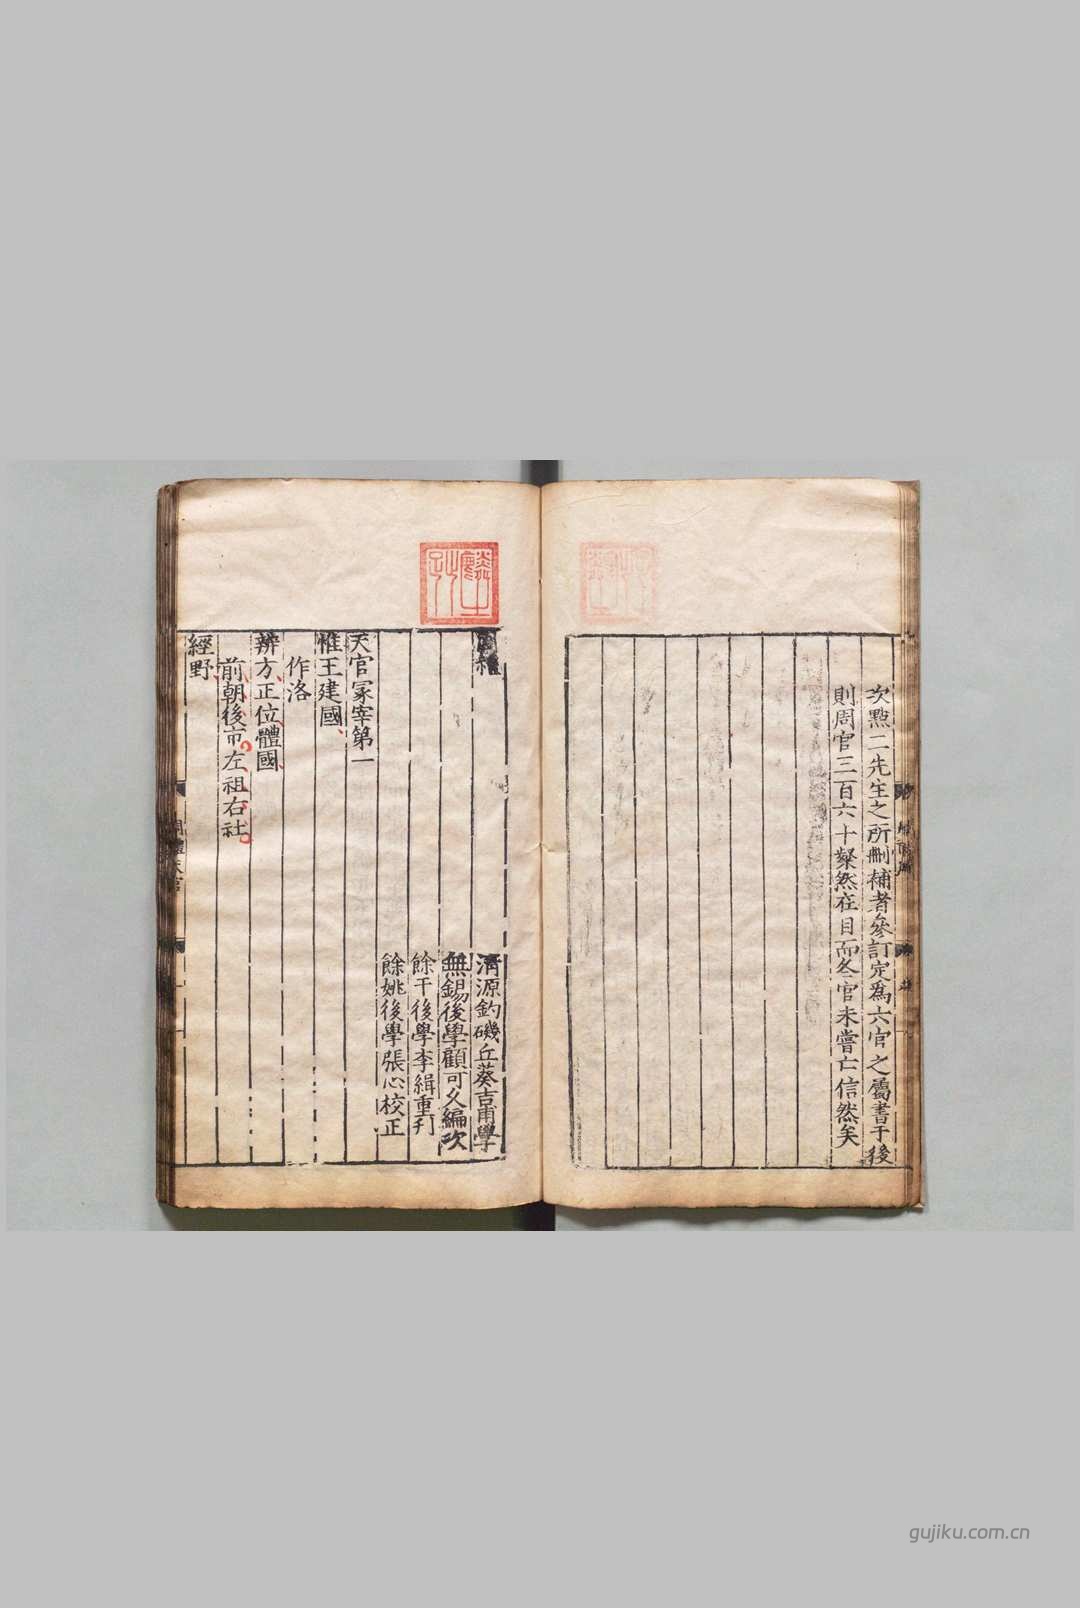 次㸃二先生之所刪補者參訂定爲六官之屬書于後
則周官三百六十粲然在目而冬官未嘗亡信然矣
周禮
清源釣磯丘葵吉甫學
無錫後學顧可久編次
餘干後學李緝重刋
餘姚後學張心校正
天官冢宰第一
惟王建國
作洛
辨方正位體國
前朝後市左祖右社
經野
周禮天官
gujiku.com.cn